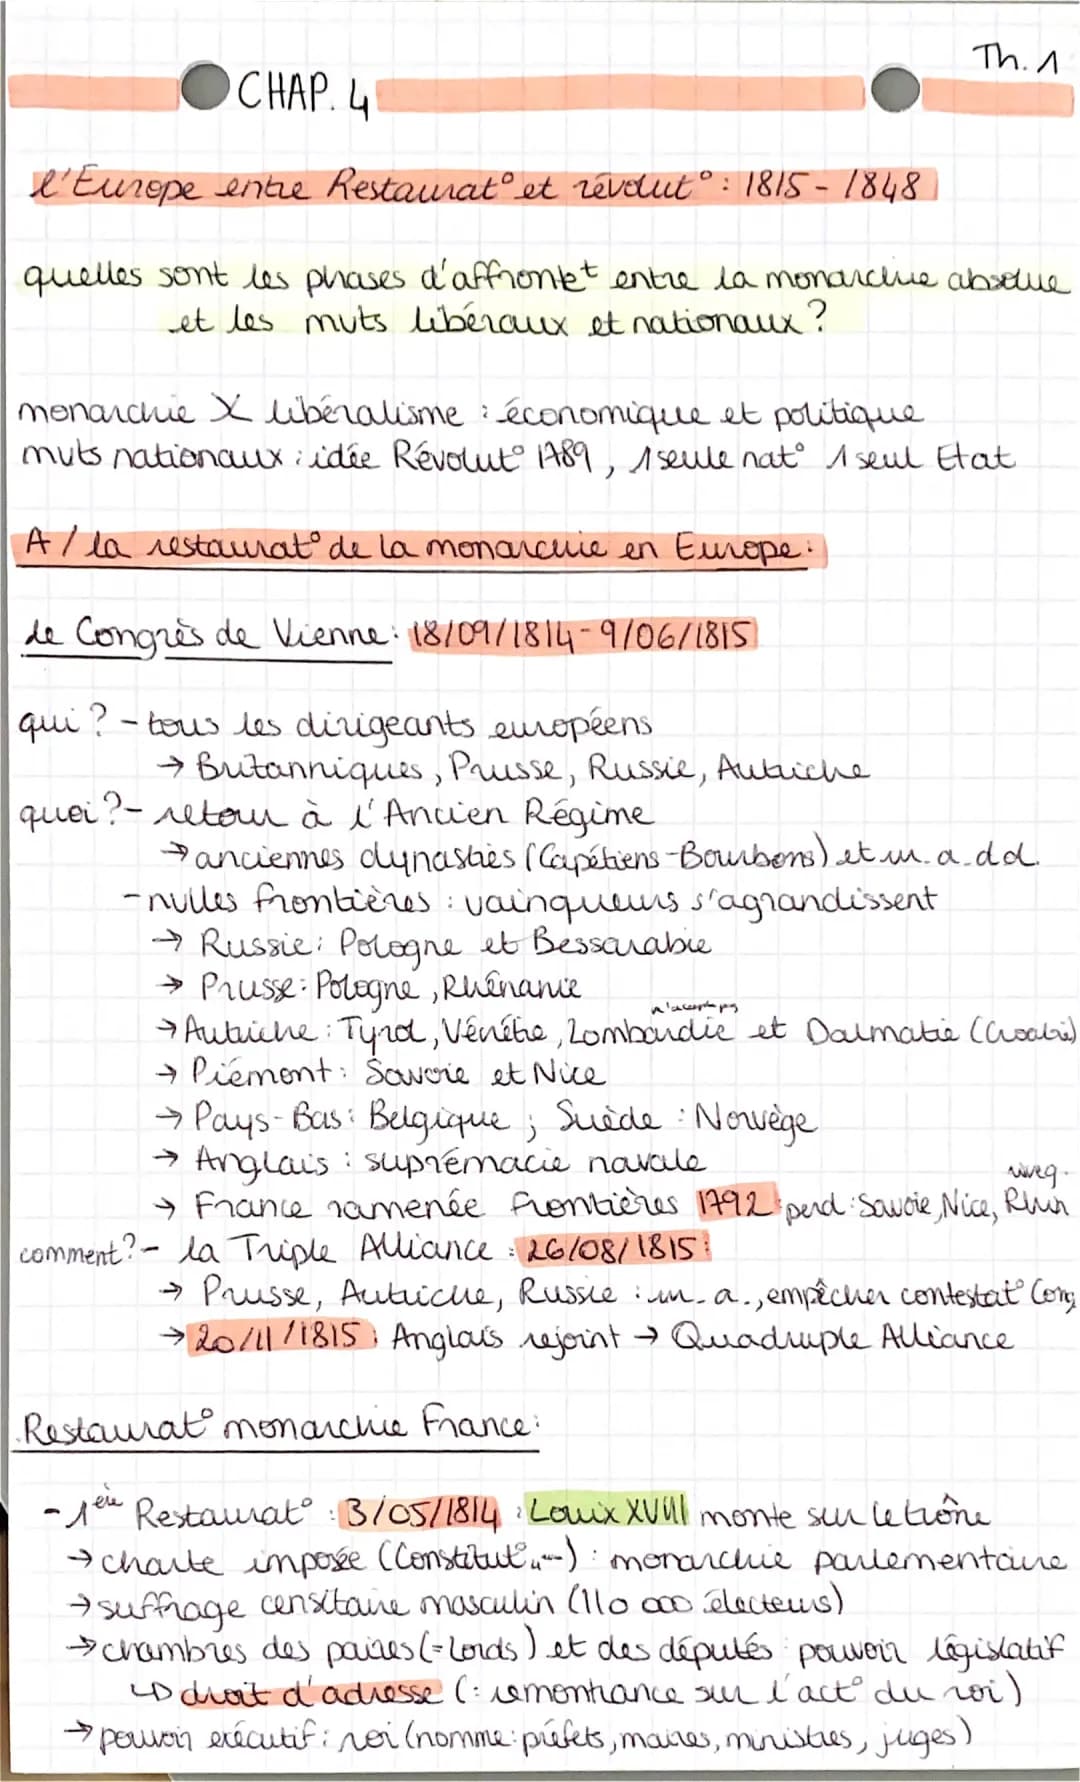 Th. 1
CHAP. 4
l'Europe entre Restaurat° et révolut° : 1815 - 1848
quelles sont les phases d'affrontet entre la monarchie absolue
et les mvts libéraux et nationaux ?
monarchie X libéralisme : économique et politique
mvts nationaux : idée Révolut° 1789, 1 seule nat° 1 seul Etat
A / la restaurat° de la monarchie en Europe :
le Congrès de Vienne : 18/09/1814 - 9/06/1815
qui ? - tous les dirigeants européens
→ Britanniques, Prusse, Russie, Autriche
quoi ? - retour à l'Ancien Régime
→ anciennes dynasties (Capétiens-Bourbons) et m. a. d d.
- nvlles frontières : vainqueurs s'agrandissent
→ Russie : Pologne et Bessarabie
→ Prusse : Pologne, Rhénanie
n'accepte pas
→ Autriche : Tyrol, Vénétie, Lombardie et Dalmatie (Croatie)
→ Piémont : Savoie et Nice
→ Pays-Bas : Belgique ; Suède : Norvège
→ Anglais : suprémacie navale
→ France ramenée frontières 1792 : perd : Savoie, Nice, Rhin
comment ? - la Triple Alliance : 26/08/1815 :
→ Prusse, Autriche, Russie : m. a., empêcher contestat° Cong
→ 20/11/1815 : Anglais rejoint → Quadruple Alliance
Restaurat° monarchie France :
- 1ère Restaurat° : 3/05/1814 : Louix XVIII monte sur le trône
→ charte imposée (Constitut° "-") : monarchie parlementaire
→ suffrage censitaire masculin (110 000 électeurs)
→ chambres des paires (= Lords) et des députés : pouvoir législatif
↳ droit d'adresse (: remontrance sur l'act° du roi)
→ pouvoir exécutif : roi (nomme : préfets, maires, ministres, juges)